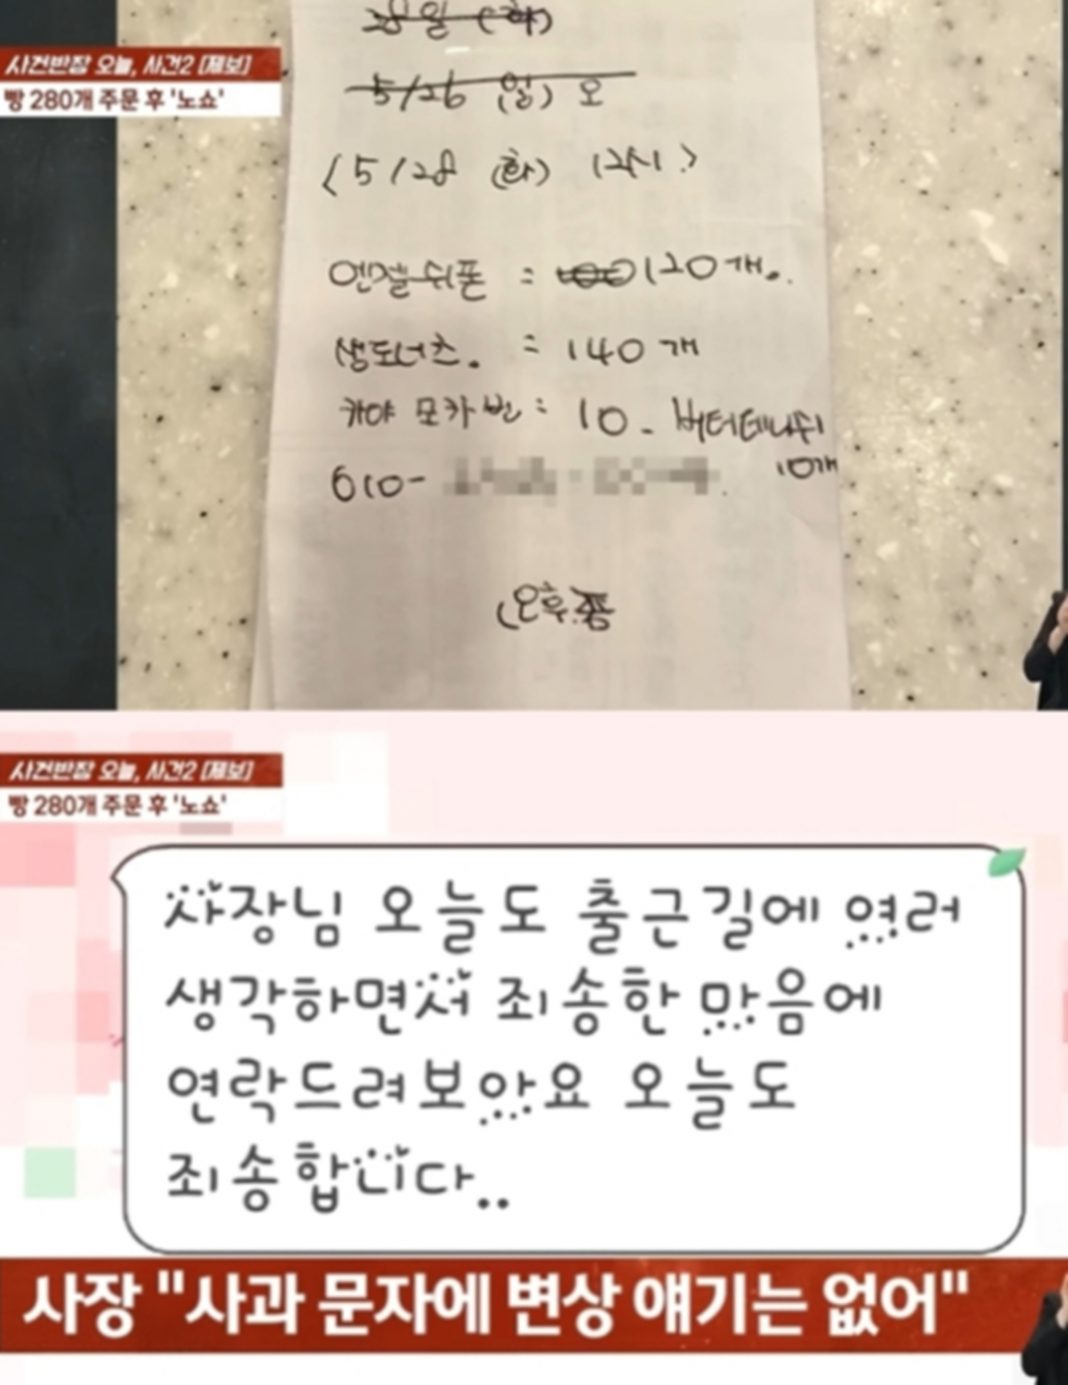 28일 (화)
사건반장 오늘, 사건2 [제보]
빵 280개 주문 후 '노쇼'
5/26 (일) 오
<5/28 (화) 12시>
엔젤쉬폰 = 120개.
생도너츠. = 140개
카야 모카번 = 10 - 버터데니쉬
10개
010-
(오후쯤
사건반장 오늘, 사건2 [제보]
빵 280개 주문 후 '노쇼'
사장님 오늘도 출근길에 여러
생각하면서 죄송한 마음에
연락드려보아요 오늘도
죄송합니다..
사장 "사과 문자에 변상 얘기는 없어"